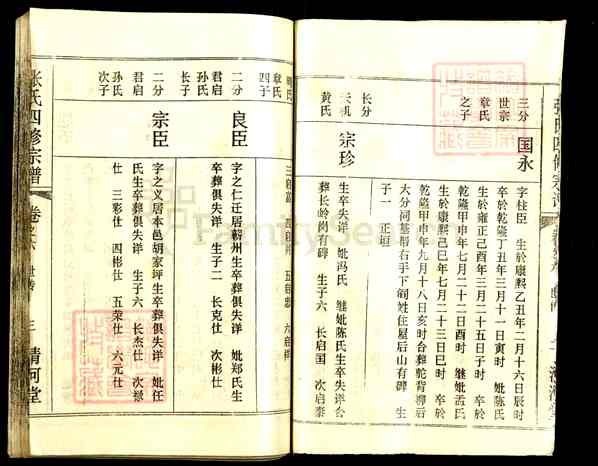 三分
世宗
章氏
之子
国永
字柱臣 生於康熙乙丑年二月十六日辰时
卒於乾隆丁丑年三月十一日寅时 妣陈氏
生於雍正己酉年三月二十五日子时 卒於
乾隆甲申年七月二十二日酉时 继妣孟氏
生於康熙己巳年七月二十三日巳时 卒於
乾隆甲申年九月十八日亥时合葬驼背柳后
大分祠基唇右手下阎姓住屋后山有碑 生
子一 正垣
长分
天机
黄氏
宗珍
生卒失详 妣冯氏 继妣陈氏生卒失详合
葬长岭岗有碑 生子六 长启国 次启泰
三启富 四启 五启忠 六启祥
章氏
四子
二分
君启
孙氏
长子
良臣
字之仁迁居蕲州生卒葬俱失详 妣郑氏生
卒葬俱失详 生子二 长克仕 次彬仕
二分
君启
孙氏
次子
宗臣
字之义居本邑胡家坪生卒葬俱失详 妣任
氏生卒葬俱失详 生子六 长杰仕 次禄
仕 三彩仕 四彬仕 五荣仕 六元仕
张氏四修宗谱
卷之六 世传
三
清河堂